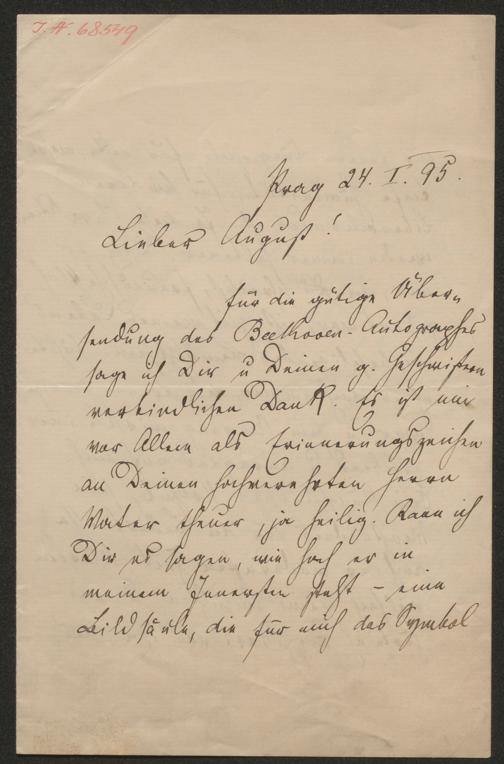 J. N. 68549
Prag 24. I. 95.
Lieber August!
für die gütige Über-
sendung des Beethoven-Autographes
sage ich Dir u Deinen g. Geschwistern
verbindlichen Dank. Es ist mir
vor Allem als Erinnerungszeichen
an Deinen hochverehrten Herrn
Vater theuer, ja heilig. Kann ich
Dir es sagen, wie hoch er in
meinem Innersten steht – eine
Bildsäule, die für mich das Symbol